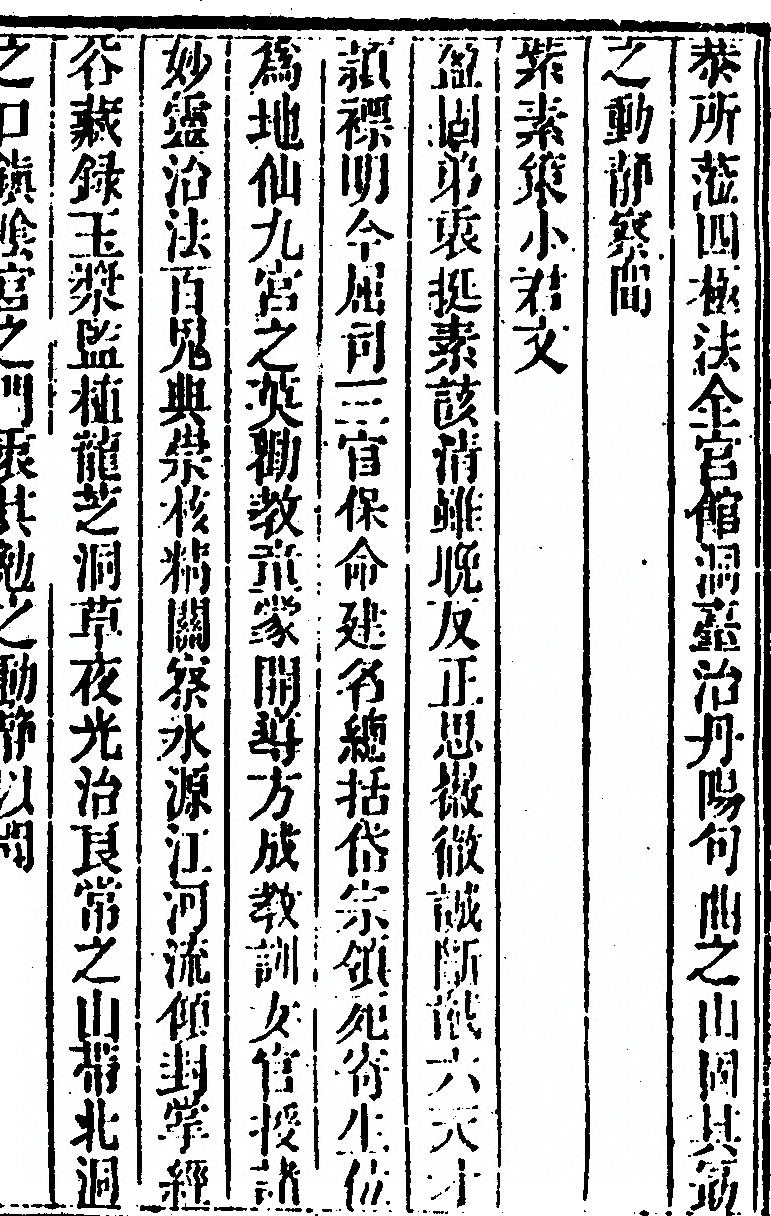 恭所蒞四極法全宮館洞臺治丹陽句曲之山固其勗
之動靜察聞
紫素策小君文
盈固弟衷挺素該清雖晚反正思微徹誠斷䧟六天才
頴標明今屈司三官保命建名總括岱宗領死寄生位
為地仙九宮之英勸教童蒙開導方成教訓女官授諸
妙靈治法百鬼典崇核精關察水源江河流傾封掌經
谷藏録玉漿監植龍芝洞草夜光治良常之山帶北洞
之口鎮陰宮之門衷其勉之動靜以聞